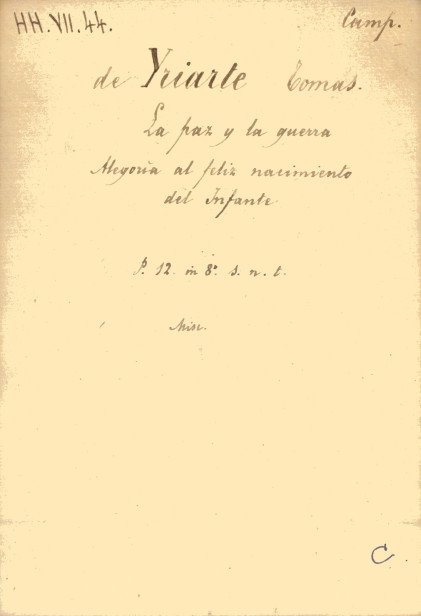 HH.VII.44.
Camp.
de Yriarte Tomas.
La paz y la guerra
Alegoria al feliz nacimiento
del Infante
P. 12. in 8º s. n. t.
Misc.
C